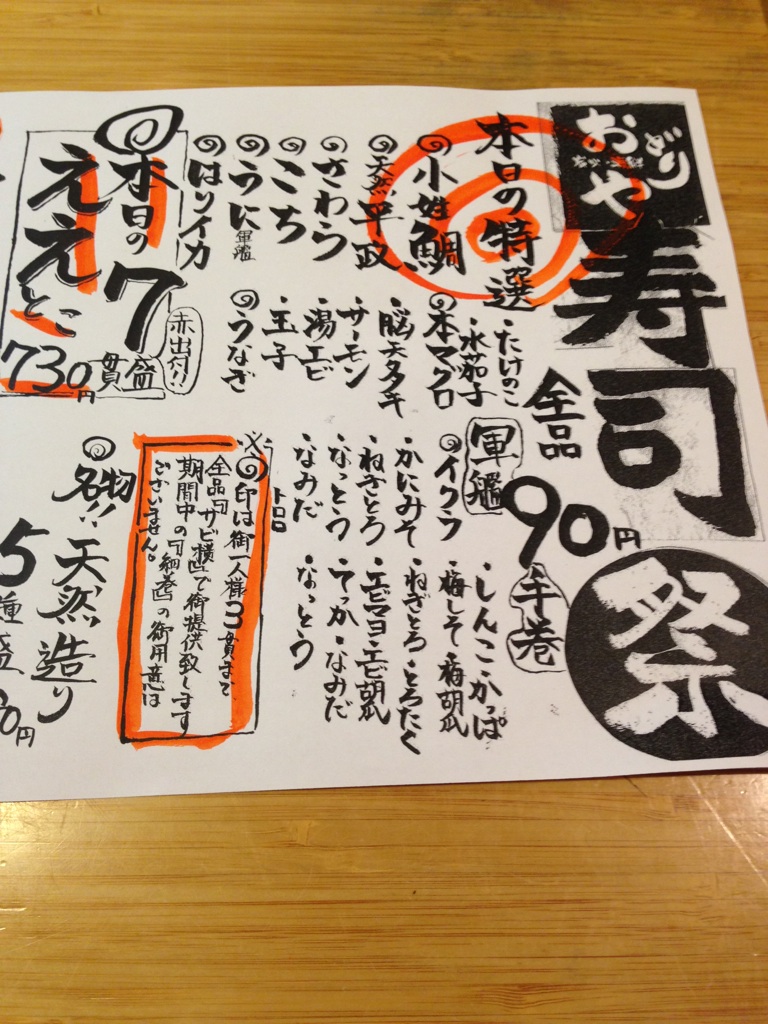 おどりや
寿司祭
全品90円
本日の特選
◎小姓鯛
◎天然平政
◎さわら
◎こち
◎うに軍艦
◎はりイカ
・たけのこ
・水茄子
◎本マグロ
・脳天タタキ
・サーモン
・湯エビ
・玉子
◎うなぎ
軍艦
◎イクラ
・かにみそ
・ねぎとろ
・なっとう
・なみだ
トロロ
手巻
・しんこ・かっぱ
・梅しそ・梅胡瓜
・ねぎとろ・とろたく
・エビマヨ・エビ胡瓜
・てっか・なみだ
・なっとう
※◎印は御一人様3貫まで
全品『サビ横』で御提供致します
期間中の『細巻』の御用意は
ございません。
◎本日の
ええとこ
7貫盛
赤出付!!
730円
◎名物!!
天然造り
5種盛
0円